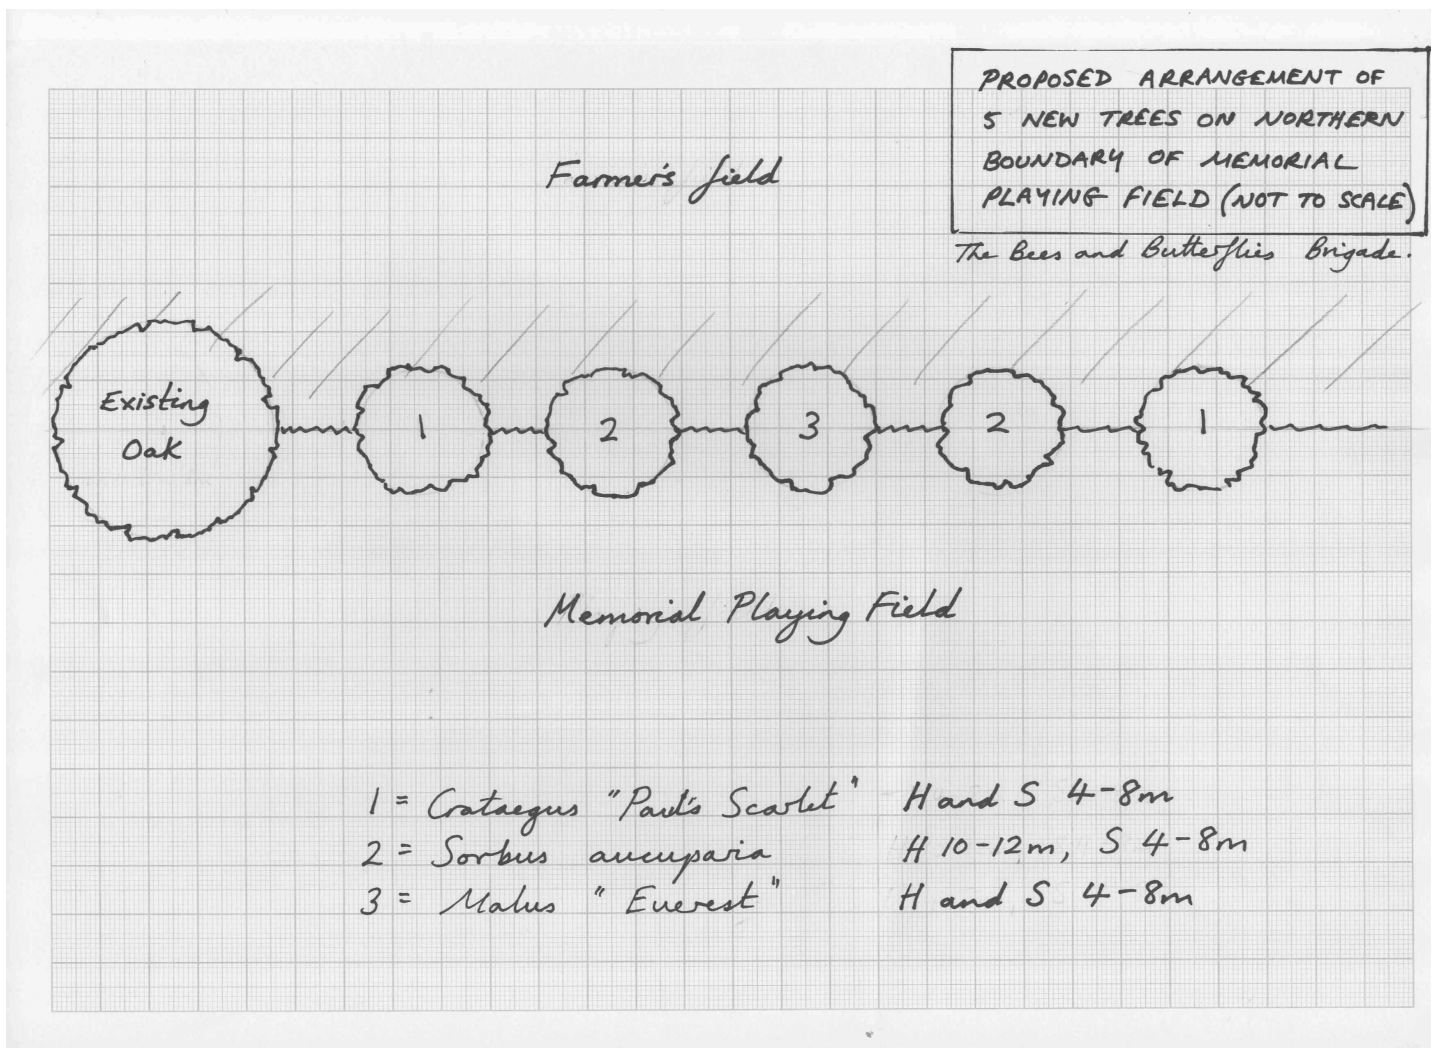 PROPOSED ARRANGEMENT OF
5 NEW TREES ON NORTHERN
BOUNDARY OF MEMORIAL
PLAYING FIELD (NOT TO SCALE)
The Bees and Butterflies Brigade.
Farmer's field
Existing
Oak
1
2
3
2
1
Memorial Playing Field
1 = Crataegus "Paul's Scarlet" H and S 4-8m
2 = Sorbus aucuparia H 10-12m, S 4-8m
3 = Malus "Everest" H and S 4-8m